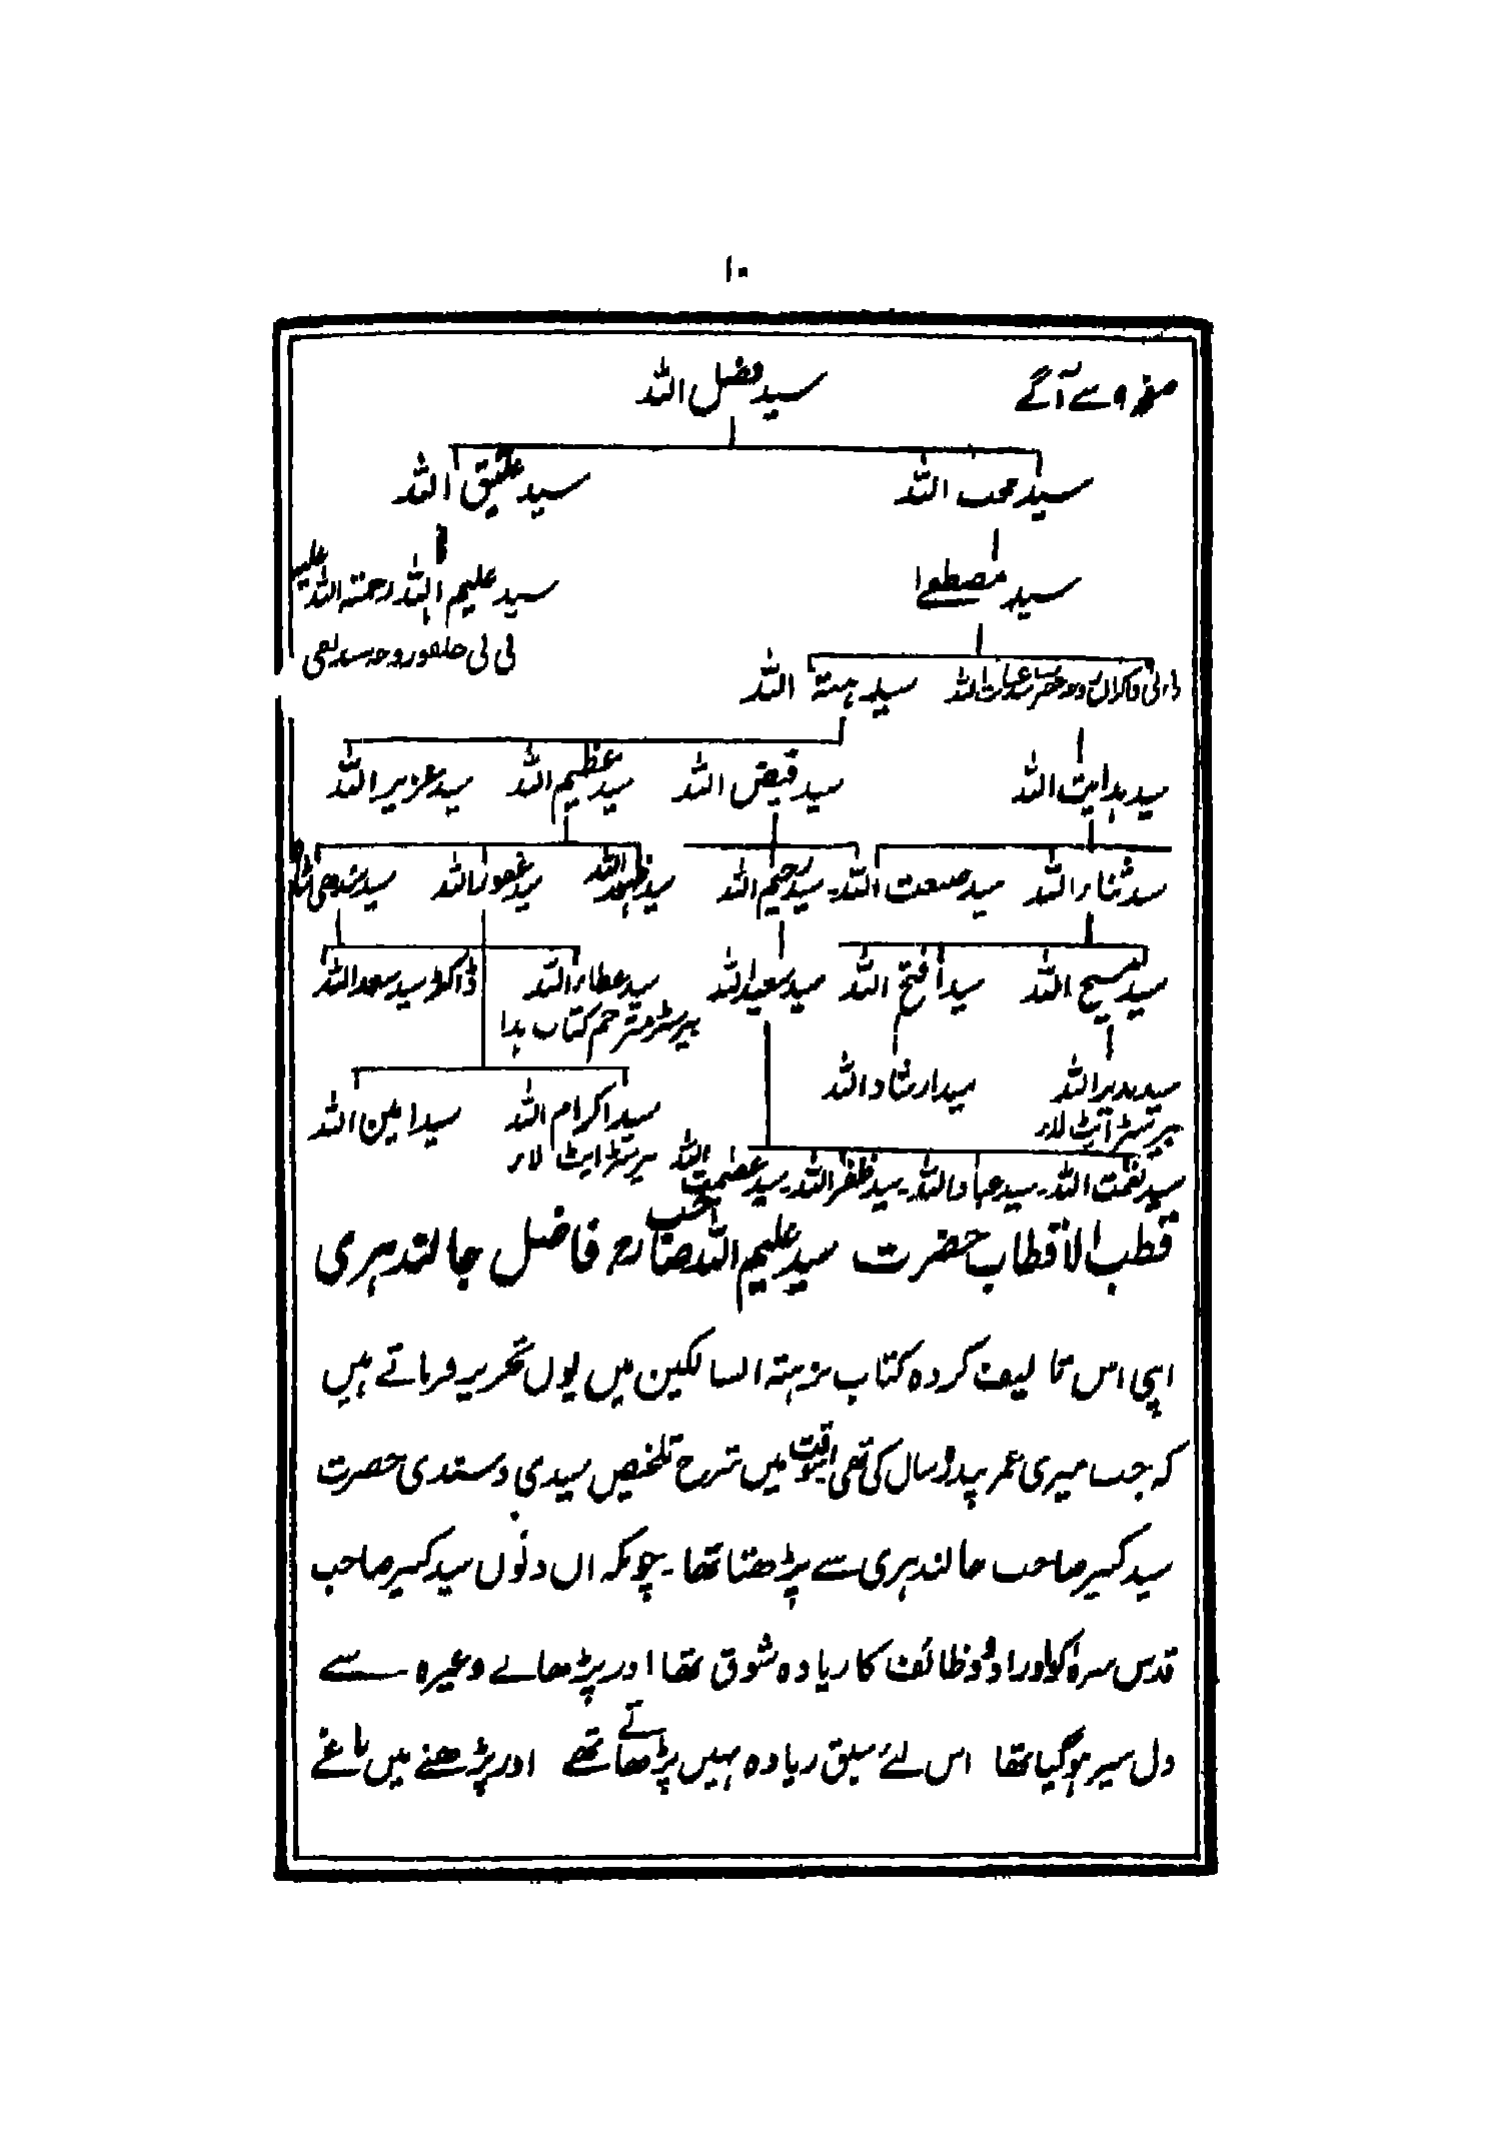 ۱۰
صفحہ ۹ سے آگے
سید فضل اللہ
سید محب اللہ
سید عتیق اللہ
سید مصطفےٰ
سید علیم اللہ رحمتہ اللہ علیہ
سید ہبتہ اللہ
سید ہدایت اللہ
سید فیض اللہ
سید عظیم اللہ
سید عزیز اللہ
سید ثناء اللہ
سید صبغت اللہ۔ سید رحیم اللہ
سید ظہور اللہ
سید غفور اللہ
سید
سید مسیح اللہ
سید فتح اللہ
سید سعید اللہ
سید عطاء اللہ
ڈاکٹر سید سعد اللہ
بیرسٹر مترجم کتاب ہذا
سید بدیر اللہ
سید ارشاد اللہ
بیرسٹر ایٹ لاء
سید اکرام اللہ
سید امین اللہ
بیرسٹر ایٹ لاء
سید نعمت اللہ۔ سید عباد اللہ۔ سید ظفر اللہ۔ سید عظمت اللہ
قطب الاقطاب حضرت سید علیم اللہ صاحب رح فاضل جالندہری
اپنی اس تالیف کردہ کتاب نزہتہ السالکین میں یوں تحریر فرماتے ہیں
کہ جب میری عمر پندرہ سال کی تھی اسوقت میں شرح تلخیص سیدی و سندی حضرت
سید کبیر صاحب جالندہری سے پڑھتا تھا۔ چونکہ ان دنوں سید کبیر صاحب
قدس سرہ کو اوراد و وظائف کا زیادہ شوق تھا اور پڑھانے وغیرہ سے
دل سیر ہوگیا تھا اس لئے سبق زیادہ نہیں پڑھاتے تھے اور پڑھنے میں ناغے